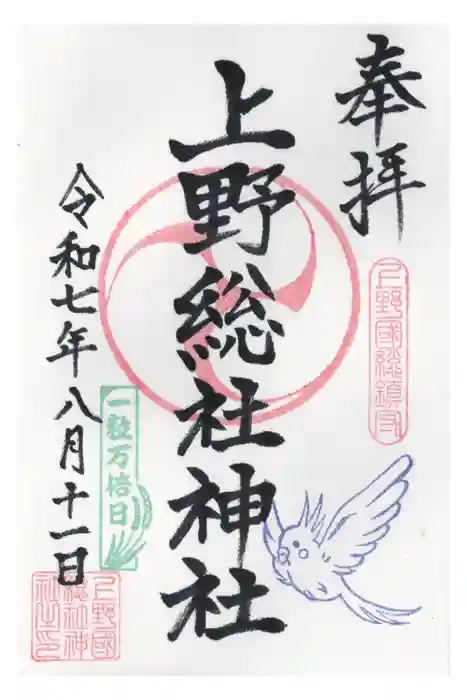 奉拝
上野國総鎮守
上野総社神社
一粒万倍日
令和七年八月十一日
上野國
総社神
社之印